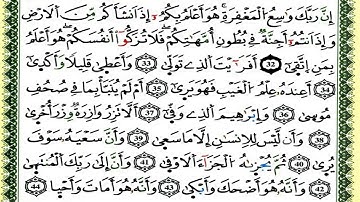 إِنَّ رَبَّكَ وَاسِعُ الْمَغْفِرَةِ هُوَ أَعْلَمُ بِكُمْ إِذْ أَنشَأَكُم مِّنَ الْأَرْضِ
وَإِذْ أَنتُمْ أَجِنَّةٌ فِي بُطُونِ أُمَّهَاتِكُمْ فَلَا تُزَكُّوا أَنفُسَكُمْ هُوَ أَعْلَمُ
بِمَنِ اتَّقَى 32 أَفَرَأَيْتَ الَّذِي تَوَلَّى 33 وَأَعْطَى قَلِيلًا وَأَكْدَى
34 أَعِندَهُ عِلْمُ الْغَيْبِ فَهُوَ يَرَى 35 أَمْ لَمْ يُنَبَّأْ بِمَا فِي صُحُفِ
مُوسَى 36 وَإِبْرَاهِيمَ الَّذِي وَفَّى 37 أَلَّا تَزِرُ وَازِرَةٌ وِزْرَ أُخْرَى
38 وَأَن لَّيْسَ لِلْإِنسَانِ إِلَّا مَا سَعَى 39 وَأَنَّ سَعْيَهُ سَوْفَ
يُرَى 40 ثُمَّ يُجْزَاهُ الْجَزَاءَ الْأَوْفَى 41 وَأَنَّ إِلَى رَبِّكَ الْمُنتَهَى
42 وَأَنَّهُ هُوَ أَضْحَكَ وَأَبْكَى 43 وَأَنَّهُ هُوَ أَمَاتَ وَأَحْيَا 44